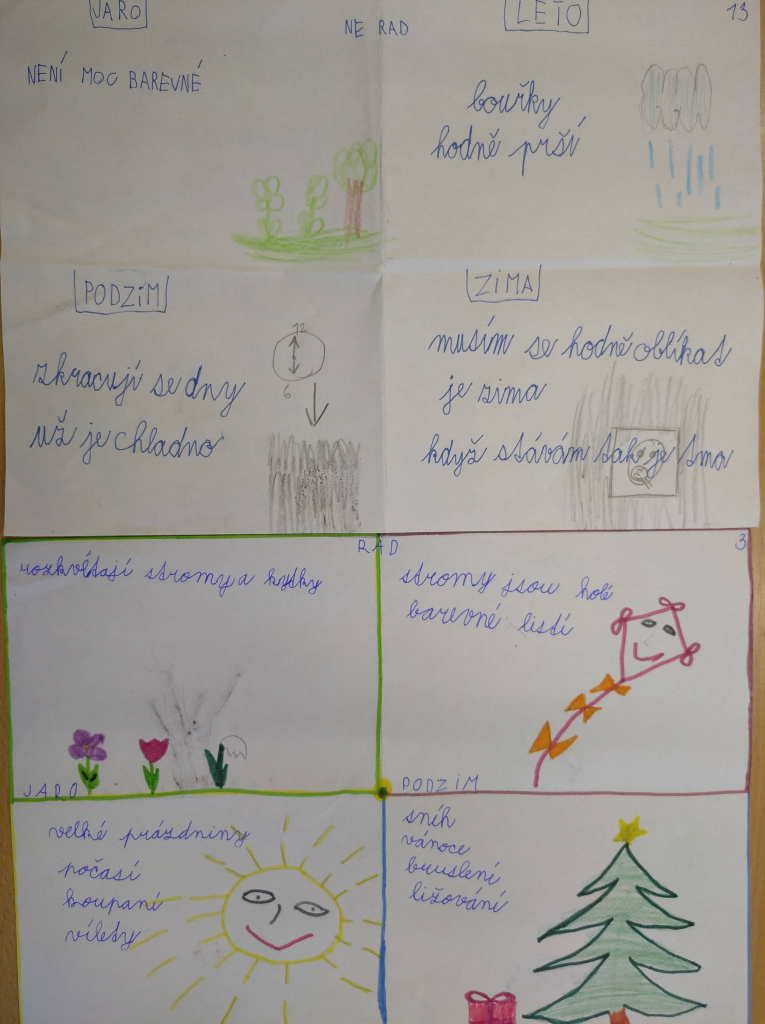 JARO
NE RAD
LÉTO
13
NENÍ MOC BAREVNÉ
bouřky
hodně prší
PODZIM
12
6
zkracují se dny
už je chladno
ZIMA
musím se hodně oblíkat
je zima
když stávám tak je tma
RAD
3
rozkvétají stromy a kytky
JARO
stromy jsou holé
barevné listí
PODZIM
velké prázdniny
počasí
koupaní
vílety
sníh
vánoce
bruslení
ližování